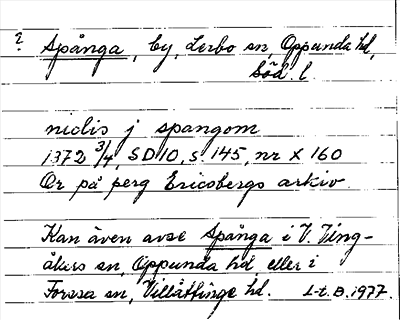 ? Spånga, by, Lerbo sn, Oppunda hd,
Söd. l.
niclis j spangom
1372 3/4, SD10, s. 145, nr X 160
Or på perg Ericsbergs arkiv
Kan även avse Spånga i V. Ving-
åkers sn, Oppunda hd eller i
Forssa sn, Villåttinge hd. L-t. B. 1977.